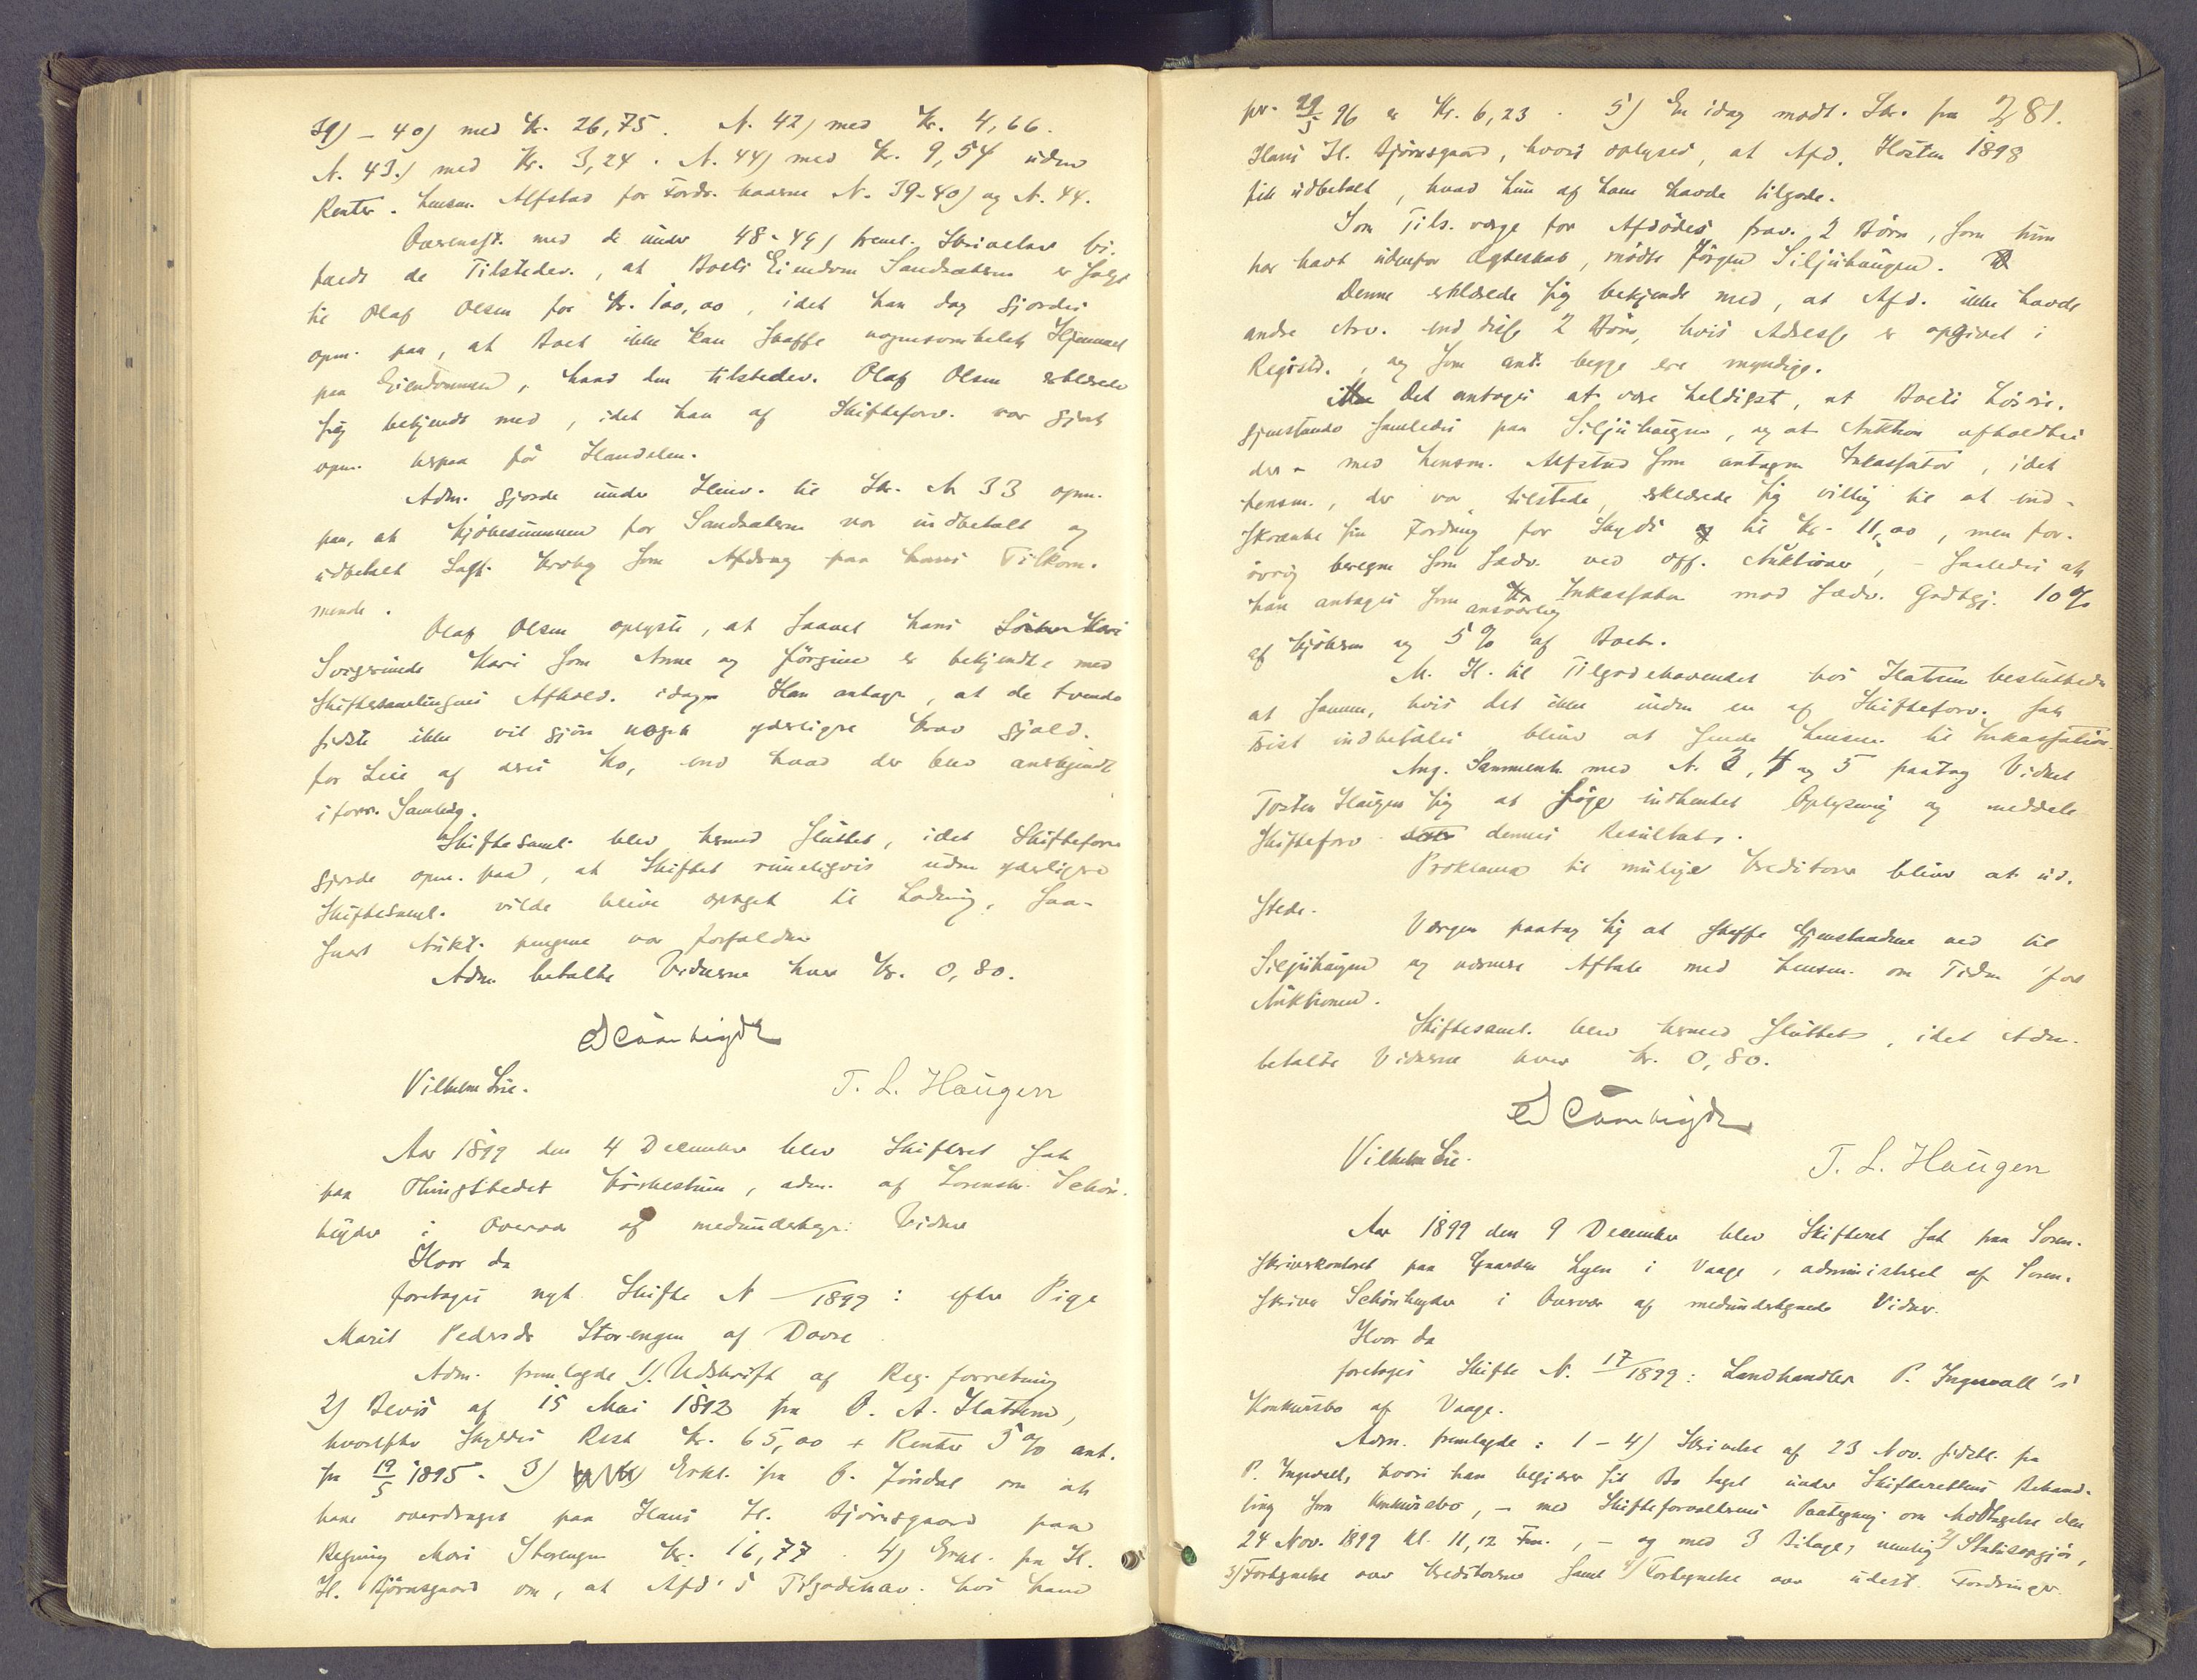 39) - 40) med Kr. 26,75. N. 42) med Kr. 4,66.
N. 43.) med Kr. 3,24. N. 44) med Kr. 9,54 uden
Renter. Lensm. Alfstad for Fordr. haverne N. 39-40) og N. 44.
Overensst. med de under 48-49) freml. Skrivelser bi-
faldt de Tilstedev., at Boets Eiendom Sandsæteren er solgt
til Olaf Olsen for Kr. 100,00, idet han dog gjordes
opm. paa, at Boet ikke kan skaffe nogensomhelst Hjemmel
paa Eiendommen, hvad den tilstedev. Olaf Olsen erklærede
sig bekjendt med, idet han af Skifteforv. var gjort
opm. herpaa før Handelen.
Adm. gjorde under Henv. til Skr. N 33 opm.
paa, at Kjøbesummen for Sandsæteren var indbetalt og
udbetalt Sagf. som Afdrag paa hans Tilkom-
mende.
Olaf Olsen oplyste, at saavel hans Søster Kari
Svigerinde Kari som Anne og Jørgine er bekjendte med
Skiftesamlingens Afhold. idag. Han antager, at de tvende
sidste ikke vil gjøre noget yderligere Krav gjæld.
for Leie af deres Ko, end hvad der blev anerkjendt
i forr. Samling.
Skiftesaml. blev hermed sluttet, idet Skifteforv.
gjorde opm. paa, at Skiftet rimeligvis uden yderligere
Skiftesaml. vilde blive optaget til Lodning, saa-
snart Aukt. pengene var forfaldne
Adm. betalte Vidnerne hver Kr. 0,80.
Vilhelm Lie. T. L. Haugen
Aar 1899 den 4 December blev Skifteret sat
paa Thingstedet Kirkestuen, adm. af Sorenskr. Schön-
heyder i Overvær af medundertegn. Vidner
Hvor da
foretoges nyt Skifte N — /1899: efter Pige
Marit Pedersdr Storengen af Dovre
Adm. fremlagde 1). Udskrift af Reg. forretning
2) Bevis af 15 Mai 1893 fra O. A. Hatrem,
hvorefter skyldes Rest Kr. 65,00 + Renter 5% ant.
fra 19/5 1895. 3) Erkl. fra O. Jondal om at
have overdraget paa Hans H. Bjørnsgaard paa
Regning Mari Storengen Kr. 16,77. 4) Erkl. fra H.
H. Bjørnsgaard om, at Afd's Tilgodehav. hos ham
281.
pr. 29/5 96 er Kr. 6,23. 5) En idag modt. Skr. fra
Hans H. Bjørnsgaard, hvori oplyses, at Afd. Høsten 1898
fik udbetalt, hvad hun af ham havde tilgode.
Som Tils. værge for Afdødes frav. 2 Børn, som hun
har havt udenfor Ægteskab, mødte Jørgen Siljuhaugen.
Denne erklærede sig bekjendt med, at Afd. ikke havde
andre Arv. end disse 2 Børn, hvis Adresse er opgivet i
Registr., og som ant. begge ere myndige.
Det antages at være heldigst, at Boets Løsøre-
gjenstande samledes paa Siljuhaugen, og at Auktion afholdtes
der - med Lensm. Alfstad som antagen Inkassator, idet
Lensm., der var tilstede, erklærede sig villig til at ind-
skrænke sin Fordring for Skyds til Kr. 11,00, men for-
øvrig beregne som sædv. ved off. Auktioner, - saaledes at
han antages som ansvarlig Inkassator mod sædv. Godtgj. 10%
af Kjøberen og 5% af Boet.
M. H. til Tilgodehavendet hos Hatrem besluttedes
at samme, hvis det ikke inden en af Skifteforv. sat
Frist indbetales bliver at sende Lensm. til Inkassation.
Ang. Sammenh. med N. 3, 4 og 5 paatog Vidnet
Tosten Haugen sig at søge indhentet Oplysning og meddele
Skifteforv. dennes Resultat.
Proklama til mulige Kreditorer bliver at ud-
stede.
Værgen paatog sig at skaffe Gjenstandene ned til
Siljuhaugen og nærmere Aftale med Lensm. om Tiden for
Auktionen.
Skiftesaml. blev hermed sluttet, idet Adm.
betalte Vidnerne hver Kr. 0,80.
Vilhelm Lie. T. L. Haugen
Aar 1899 den 9 December blev Skifteret sat paa Soren-
skriverkontoret paa Gaarden Lyen i Vaage, administreret af Soren-
skriver Schönheyder i Overvær af medundertegnede Vidner.
Hvor da
foretoges Skifte N. 17/1899: Landhandler P. Ingevall's
Konkursbo af Vaage.
Adm. fremlagde: 1 - 4) Skrivelse af 23 Nov. sidstl. fra
P. Ingevall, hvori han begjærer sit Bo taget under Skifterettens Behand-
ling som Konkursbo, - med Skifteforvalterens Paategning om Modtagelse den
24 Nov. 1899 Kl. 11,12 Fm., - og med 3 Bilage, nemlig 2) Statusopgjør,
3) Fortegnelse over Kreditorerne samt 4) Fortegnelse over udest. Fordringer.